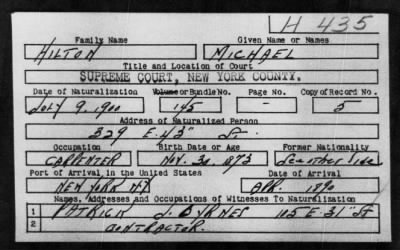 H 435
Family Name Given Name or Names
HILTON MICHAEL
Title and Location of Court
SUPREME COURT, NEW YORK COUNTY.
Date of Naturalization Volume or Bundle No. Page No. Copy of Record No.
JULY 9. 1900 145 - 5
Address of Naturalized Person
329 E. 43" St.
Occupation Birth Date or Age Former Nationality
CARPENTER NOV. 30. 1873
Port of Arrival in the United States Date of Arrival
NEW YORK N.Y. APR. 1890
Names, Addresses and Occupations of Witnesses To Naturalization
1 PATRICK J. BYRNES 105 E. 31" St
2 CONTRACTOR.